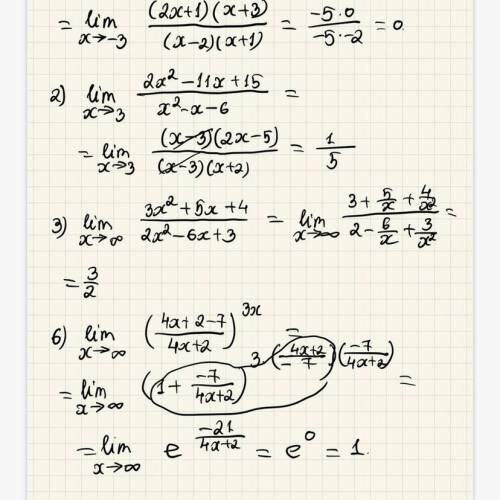 = lim x→-3 (2x+1)(x+3) / (x-2)(x+1) = -5·0 / -5·-2 = 0
2) lim x→3 2x² -11x+15 / x²-x-6 =
= lim x→3 (x-3)(2x-5) / (x-3)(x+2) = 1/5
3) lim x→∞ 3x²+5x+4 / 2x²-6x+3 = lim x→∞ 3+5/x+4/x² / 2-6/x+3/x² =
= 3/2
6) lim x→∞ (4x+2-7 / 4x+2)^3x =
= lim x→∞ (1+ -7/4x+2)^3·(4x+2/-7)(-7/4x+2) =
= lim x→∞ e^-21/4x+2 = e^0 = 1.